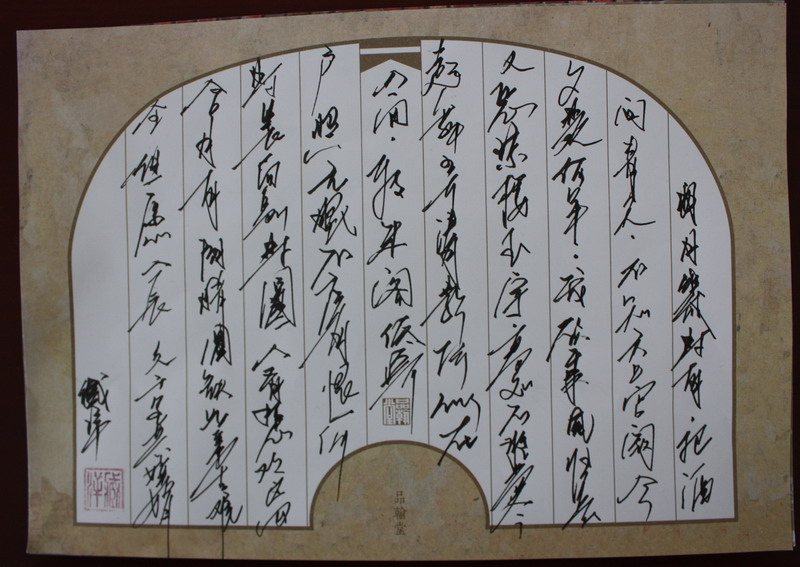 明月几时有把酒
问青天·不知天上宫阙今
夕是何年·我欲乘风归去
又恐琼楼玉宇高处不胜寒
起舞弄清影何似在
人间·转朱阁低
户照无眠不应有恨
时长向别时圆人有悲欢
合月有阴晴圆缺此事古难
全但愿人长久千里共婵娟
品翰堂